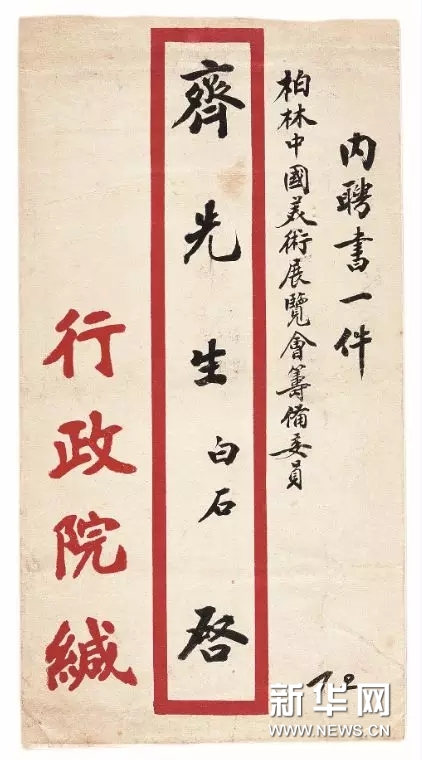 内聘書一件
柏林中國美術展覽會籌備委員
齊先生白石啓
行政院緘
新华网
WWW.NEWS.CN